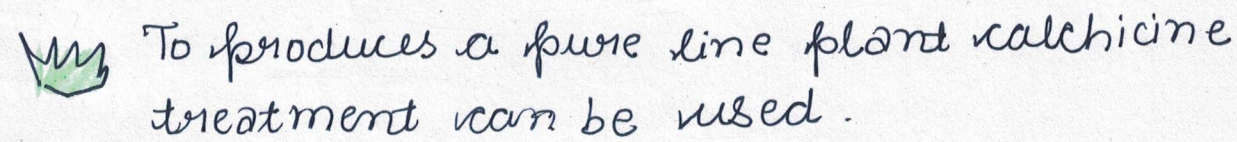 To produces a pure line plant calchicine
treatment can be used.